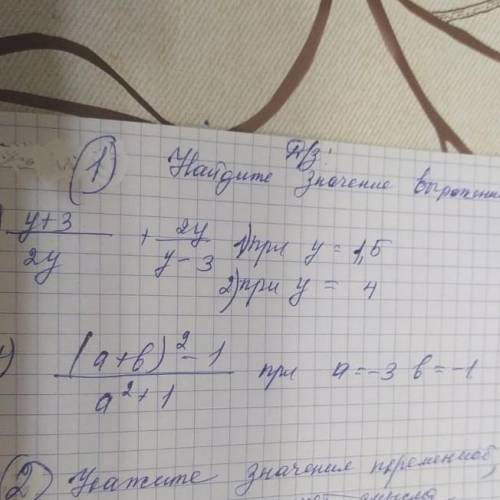 Д/З:
1 Найдите значение выражени
y+3/2y + 2y/y-3 1) при y = 1,5
2) при y = 4
(a+b)² - 1/a² + 1 при a = -3 b = -1
2 Укажите значения переменной,
смысла